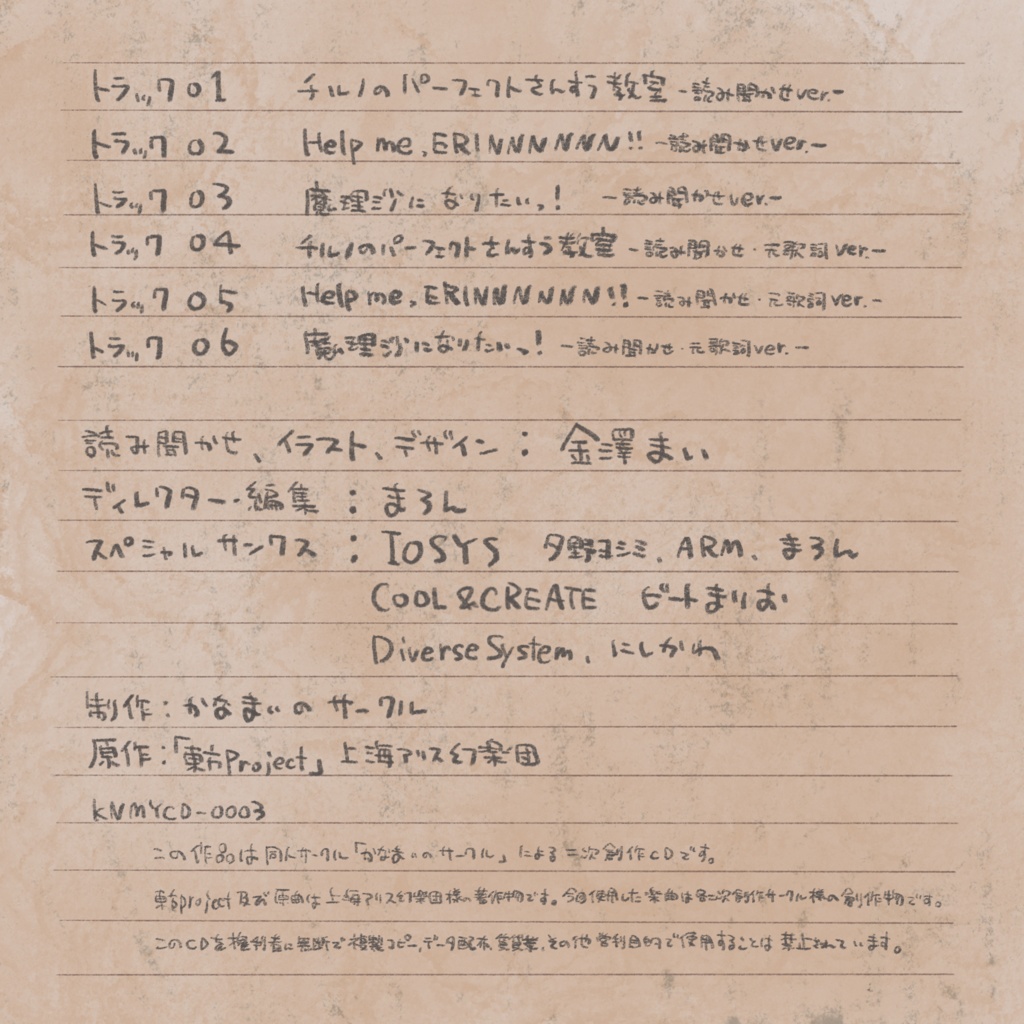 トラック 01 チルノのパーフェクトさんすう教室 -読み聞かせver.-
トラック 02 Help me, ERINNNNNN!! -読み聞かせver.-
トラック 03 魔理沙になりたいっ! -読み聞かせver.-
トラック 04 チルノのパーフェクトさんすう教室 -読み聞かせ・元歌詞ver.-
トラック 05 Help me, ERINNNNNN!! -読み聞かせ・元歌詞ver.-
トラック 06 魔理沙になりたいっ! -読み聞かせ・元歌詞ver.-
読み聞かせ、イラスト、デザイン : 金澤まい
ディレクター・編集 : まろん
スペシャルサンクス : IOSYS 夕野ヨシミ、ARM、まろん
COOL&CREATE ビートまりお
Diverse System、にしかわ
制作:かなまいのサークル
原作:「東方Project」上海アリス幻楽団
KNMYCD-0003
この作品は同人サークル「かなまいのサークル」による二次創作CDです。
東方project及び原曲は上海アリス幻楽団様の著作物です。今回使用した楽曲は各二次創作サークル様の創作物です。
このCDを権利者に無断で複製コピー、データ配布、賃貸業、その他営利目的で使用することは禁止されています。